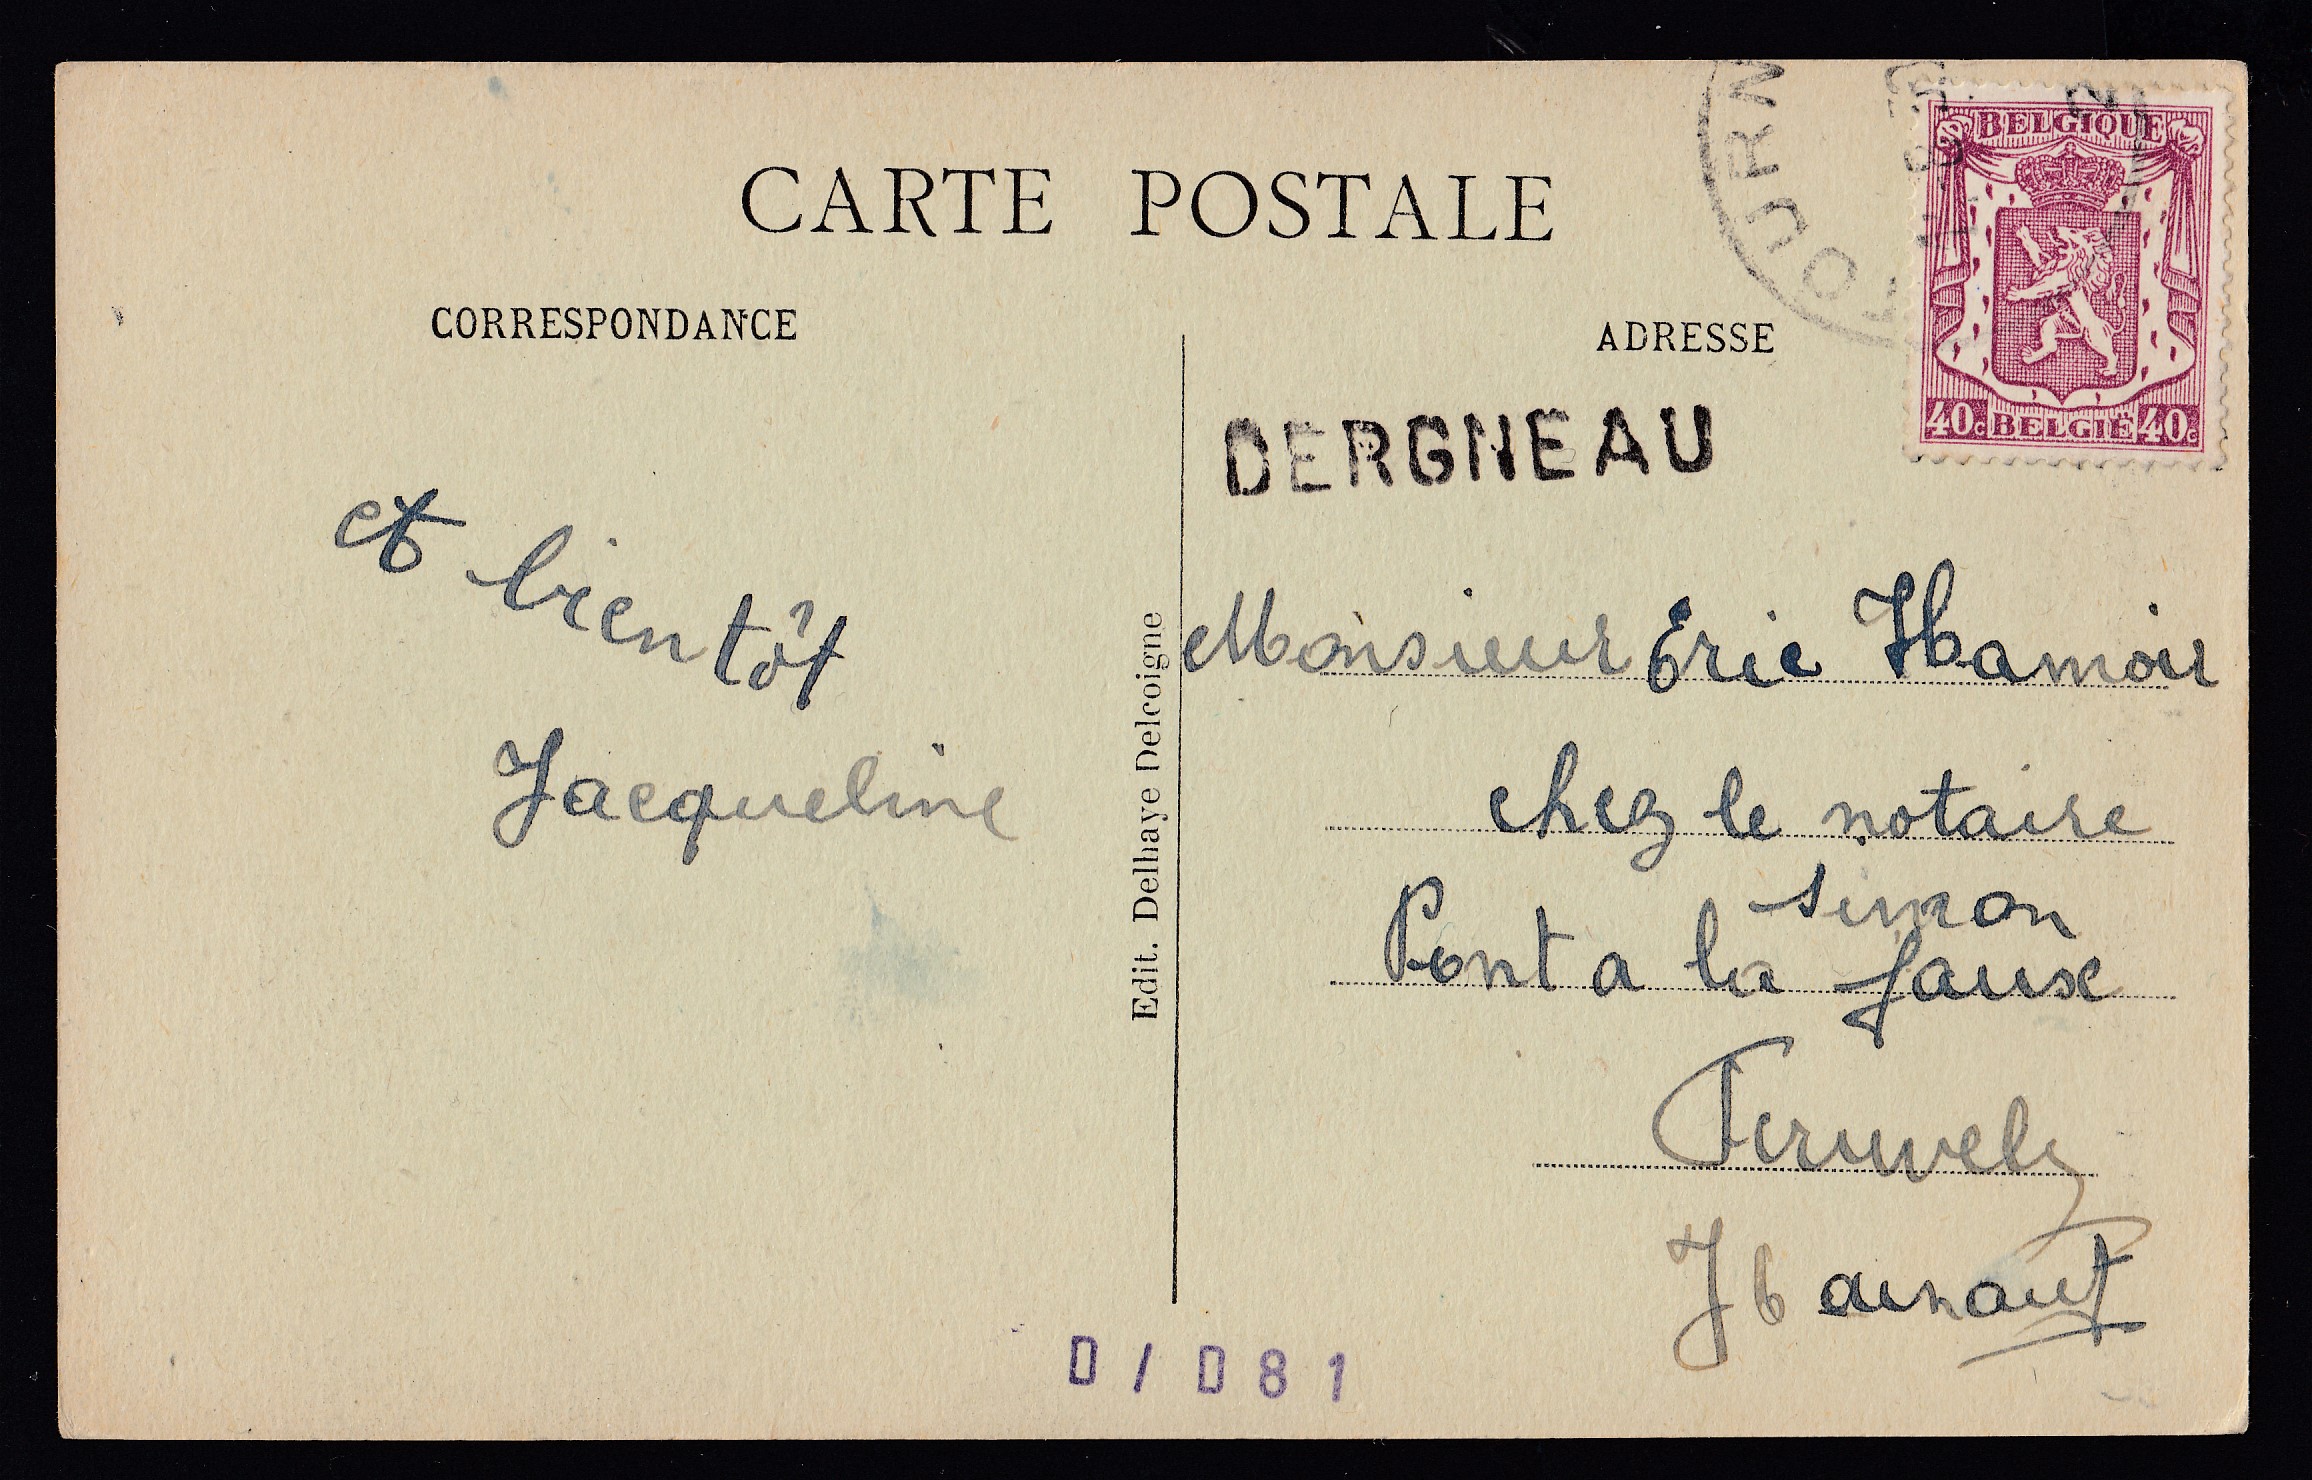 CARTE POSTALE
CORRESPONDANCE
ADRESSE
TOURN
BELGIQUE
40c BELGIË 40c
DERGNEAU
et bientôt
Jacqueline
Edit. Delhaye Delcoigne
Monsieur Eric Hamoir
chez le notaire
Simon
Pont a la faux
Peruwelz
Hainaut
D / D 8 1